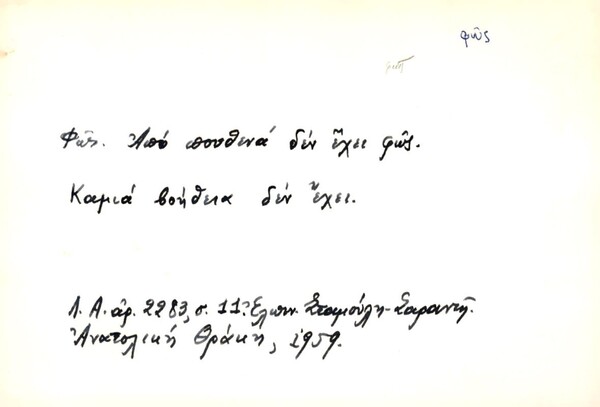 φῶς
Φῶς. Ἀπό πουθενά δέν ἔχει φῶς.
Καμιά βοήθεια δέν ἔχει.
Λ. Α. ἀρ. 2283, σ. 11. Ἐλπιν. Σταμούλη-Σαραντῆ.
Ἀνατολική Θράκη, 1959.